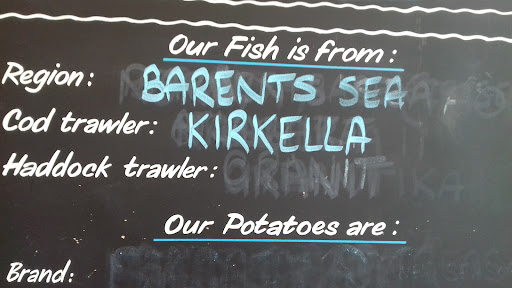 Our Fish is from:
Region: BARENTS SEA
Cod trawler: KIRKELLA
Haddock trawler: GRANIT
Our Potatoes are:
Brand: